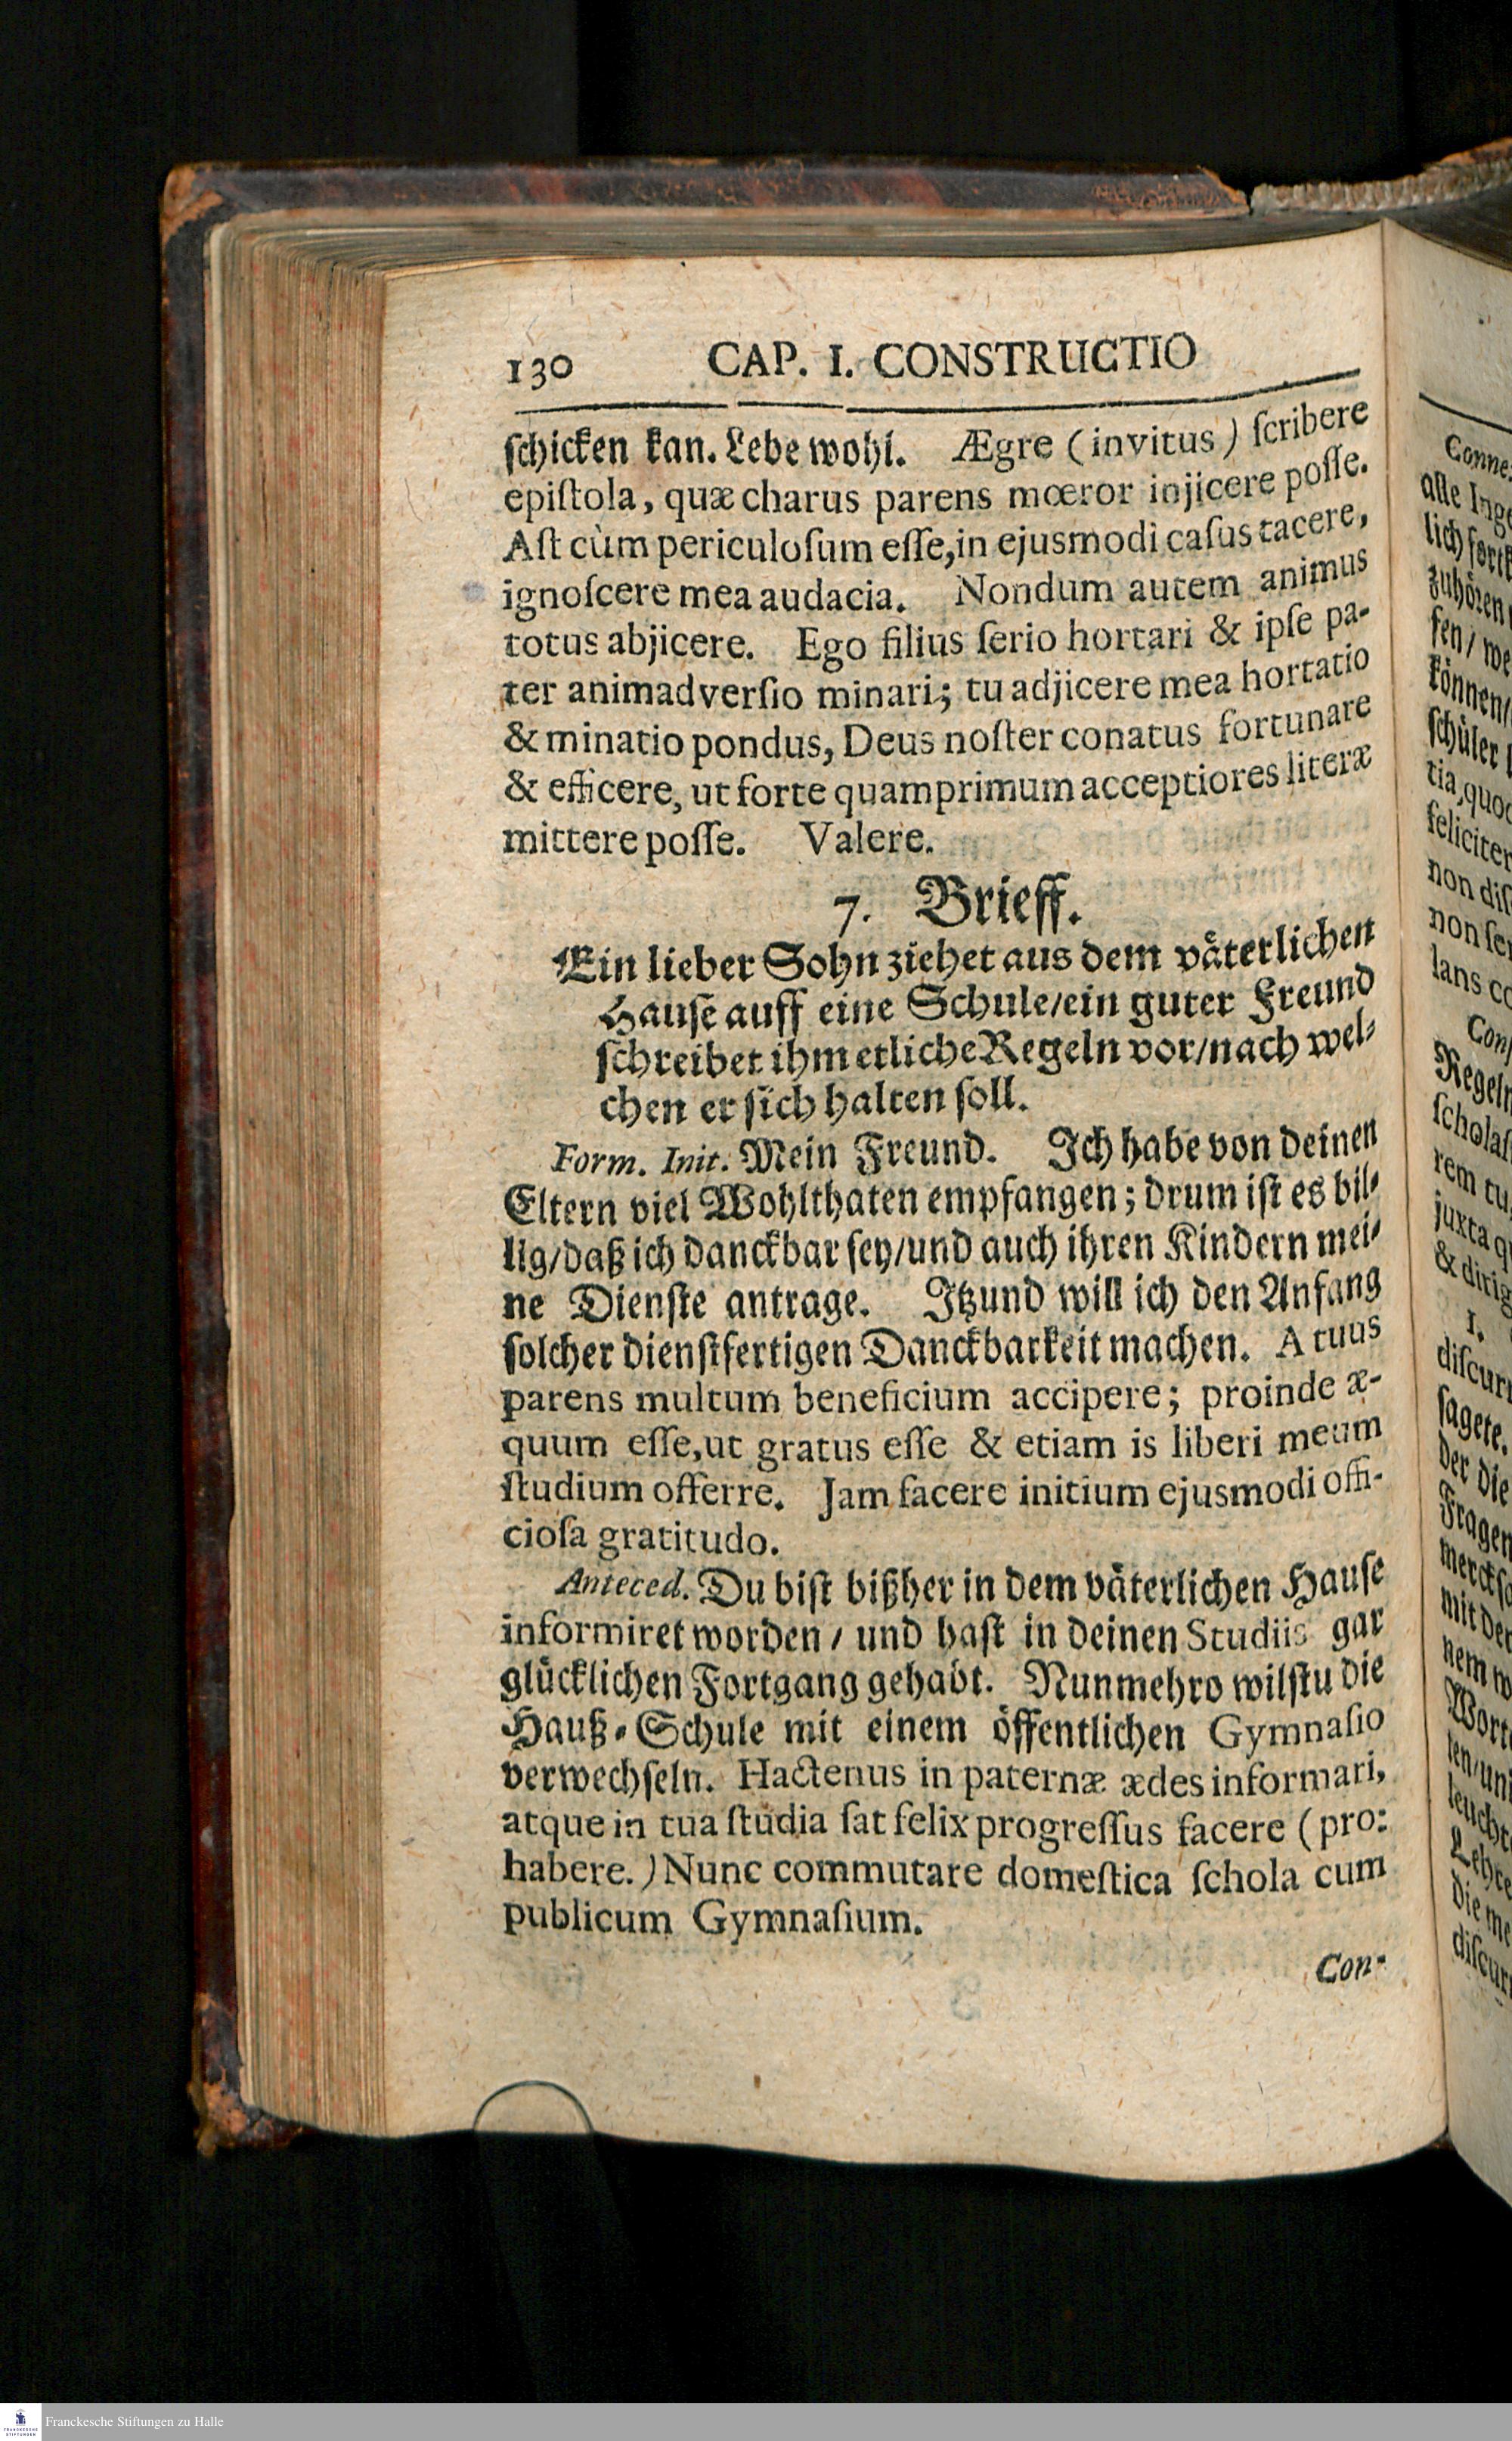 130 CAP. I. CONSTRUCTIO
ſchicken kan. Lebe wohl. Ægre (invitus) ſcribere
epiſtola, quæ charus parens mœror injicere poſſe.
Aſt cùm periculoſum eſſe, in ejusmodi caſus tacere,
ignoſcere mea audacia. Nondum autem animus
totus abjicere. Ego filius ſerio hortari & ipſe pa-
ter animadverſio minari; tu adjicere mea hortatio
& minatio pondus, Deus noſter conatus fortunare
& efficere, ut forte quamprimum acceptiores literæ
mittere poſſe. Valere.
7. Brieff.
Ein lieber Sohn ziehet aus dem väterlichen
Hauſe auff eine Schule/ein guter Freund
ſchreibet ihm etliche Regeln vor/nach wel-
chen er ſich halten ſoll.
Form. Init. Mein Freund. Ich habe von deinen
Eltern viel Wohlthaten empfangen; drum iſt es bil-
lig/daß ich danckbar ſey/und auch ihren Kindern mei-
ne Dienſte antrage. Itzund will ich den Anfang
ſolcher dienſtfertigen Danckbarkeit machen. A tuus
parens multum beneficium accipere; proinde æ-
quum eſſe, ut gratus eſſe & etiam is liberi meum
ſtudium offerre. Jam facere initium ejusmodi offi-
cioſa gratitudo.
Anteced. Du biſt bißher in dem väterlichen Hauſe
informiret worden / und haſt in deinen Studiis gar
glücklichen Fortgang gehabt. Nunmehro wilſtu die
Hauß-Schule mit einem öffentlichen Gymnaſio
verwechſeln. Hactenus in paternæ ædes informari,
atque in tua ſtudia ſat felix progreſſus facere (pro:
habere.) Nunc commutare domeſtica ſchola cum
publicum Gymnaſium.
Con-
Conne
alle
lich
zuhören
ſen/
können/
ſchüler
tia, quod
feliciter
non
non
lans
Regeln
rem tu,
juxta
&
1.
ſagete.
der die
Fragen
mit der
nem
Franckesche Stiftungen zu Halle